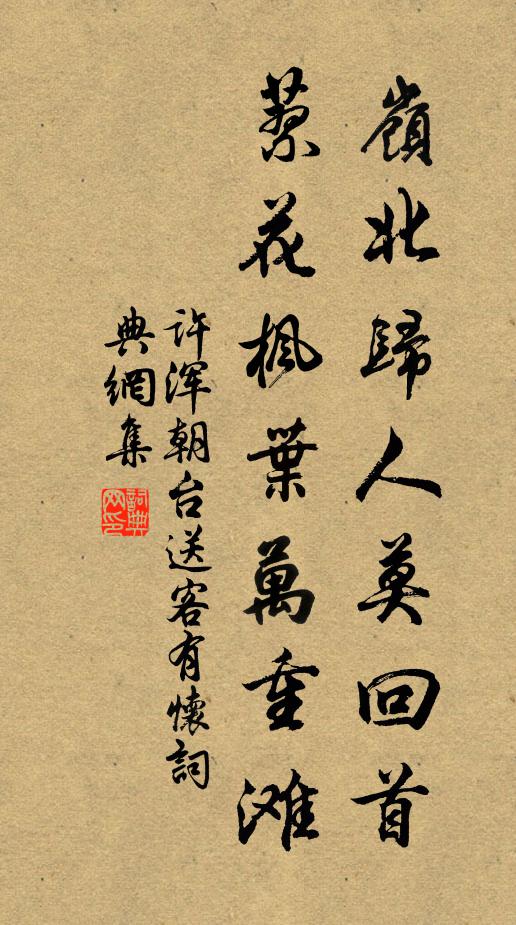 嶺北歸人莫回首
蓼花楓葉萬重滩
許渾朝台送客有懷詞
典網集
詞典网印